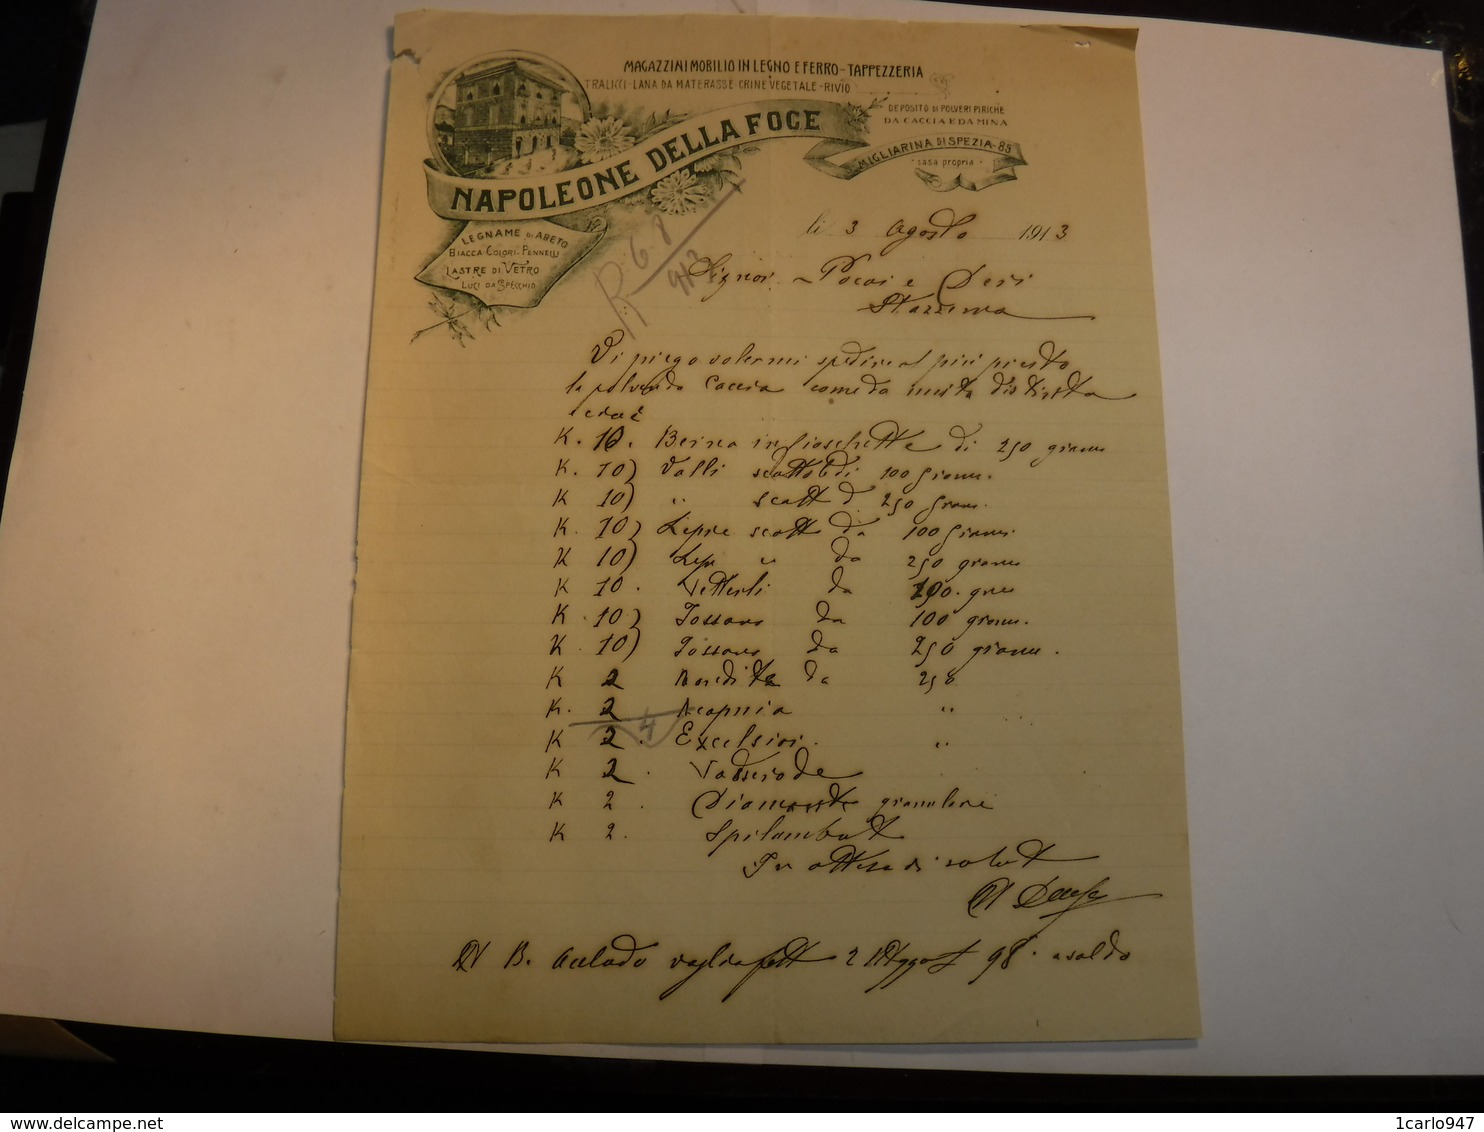 MAGAZZINI MOBILIO IN LEGNO E FERRO - TAPPEZZERIA
TRALICCI - LANA DA MATERASSE - CRINE VEGETALE - RIVIO
DEPOSITO DI POLVERI PIRICHE
DA CACCIA E DA MINA
NAPOLEONE DELLA FOCE
MIGLIARINA DI SPEZIA - 85
casa propria
LEGNAME DI ABETO
BIACCA - COLORI - PENNELLI
LASTRE DI VETRO
LUCI DA SPECCHIO
li 3 Agosto 1913
R 6-8
913
Signori Pocai e
Stazzema
Vi prego volermi spedire al più presto
la polvere da Caccia come da nostra distinta
e cioè
K. 10. in fiaschette di 250 gramm
K. 10) Valli scattole di 100 Gramm.
K 10) " scatt di 250 gram.
K. 10) Lepre scatt da 100 Grammi
K 10) Lepr " da 250 gramm
K 10. Vetterli da
K. 10) da 100 gramm.
K. 10) da 250 gramm.
K 2 da 250
K. 2 Acapnia "
K 2. Excelsior. "
4
K 2.
K 2. Diamante granulare
K 2.
In attesa di
N B. vaglia 98. a saldo
1carlo947
delcampe.net